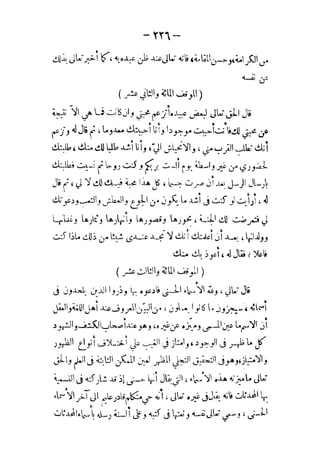 — ٢٢٦ —
من الكرامة، وحسن المقامة، فانه تعالى عند ظن عبده به، كما أخبر تعالى بذلك
عن نفسه
( الموقف المائة والثاني عشر )
قال الحق تعالى لبعض عبيده، أتزعم محبتي وان كانت فما هي الا نتيجة
عن محبتي لك، فأنت أحببت موجودا وأنا أحببتك معدوما، ثم قال له وتزعم
أنك تطلب القرب مني، والانحياش الي، وأنا أشد طلبا لك منك، وطلبتك
لحضوري من غير واسطة يوم ألست بربكم وكنت روحا ثم نسيت فطلبتك
بارسال الرسل بعد أن صرت جسما، كل هذا محبة فيك لك لا لي، ثم قال
له، أرأيت لو كنت في أشد ما يكون من الجوع والعطش والتعب ودعوتك
لي فتعرضت لك الجنة، بحورها وقصورها وأنهارها وثمارها وغلمانها
وولدانها، بعد أن أعلمتك أنك لا تجد عندي شيئا من ذلك ماذا كنت
فاعلا، فقال له، أعوذ بك منك
( الموقف المائة والثالث عشر )
قال تعالى، ولله الأسماء الحسنى فادعوه بها وذروا الذين يلحدون في
أسمائه، سيجزون ما كانوا يعملون، من البيّن المعروف عند أهل اللغة والعقل
أن الاسم ما عين المسمى وميّزه عن غيره، وهو عند أصحاب الكشف والشهود
كل ما ظهر في الوجود، وامتاز في الغيب على أختلاف أنواع الظهور
والامتياز، وهو في التحقيق التجلي المظهر لعين الممكن الثابتة في العلم والحق
تعالى ما ميزته هذه الأسماء، التي يقال أنها حسنى إذ قد شاركته في التسمية
بها المحدثات فانه يقال في غيره تعالى، أنه حي متكلم قادر عليم الى آخر الأسماء
الحسنى، وسمي تعالى نفسه ونعتها في كتبه وعلى ألسنة رسله بأسماء المحدثات